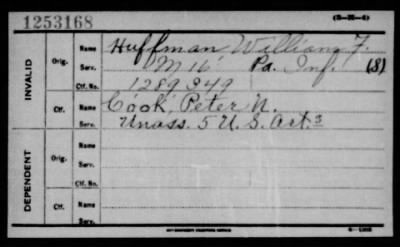 1253168
(3-35-4)
INVALID
Orig. Name Huffman William F.
Serv. M 16 Pa. Inf. (8)
Ctf. No. 1289349
Ctf. Name Cook, Peter N.
Serv. Unass. 5 U. S. Art. 3
DEPENDENT
Orig. Name
Serv.
Ctf. No.
Ctf. Name
Serv.